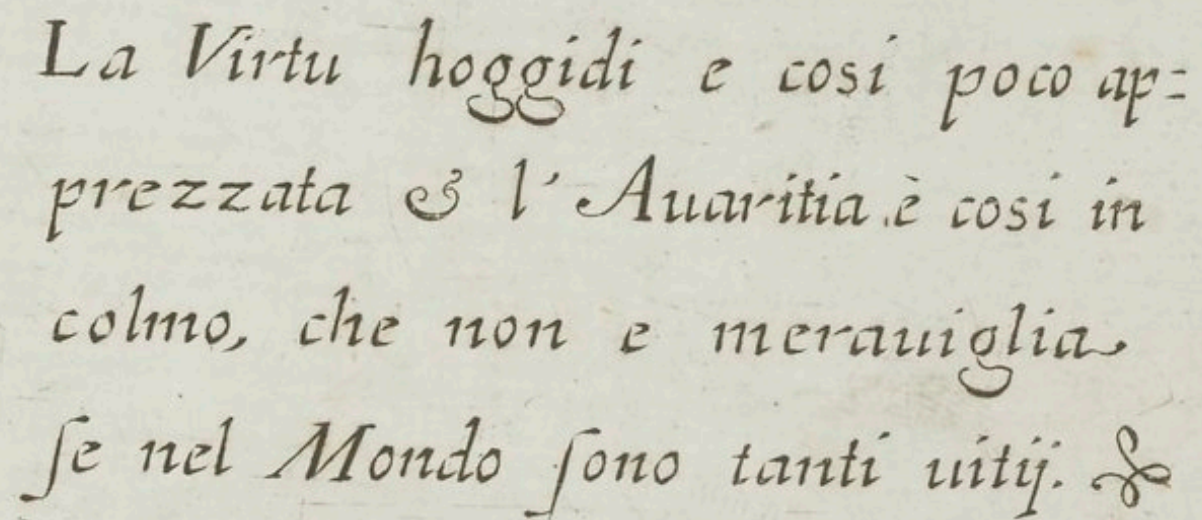 La Virtu hoggidi e cosi poco ap=
prezzata & l' Auaritia è cosi in
colmo, che non e merauiglia
ſe nel Mondo ſono tanti uitij.